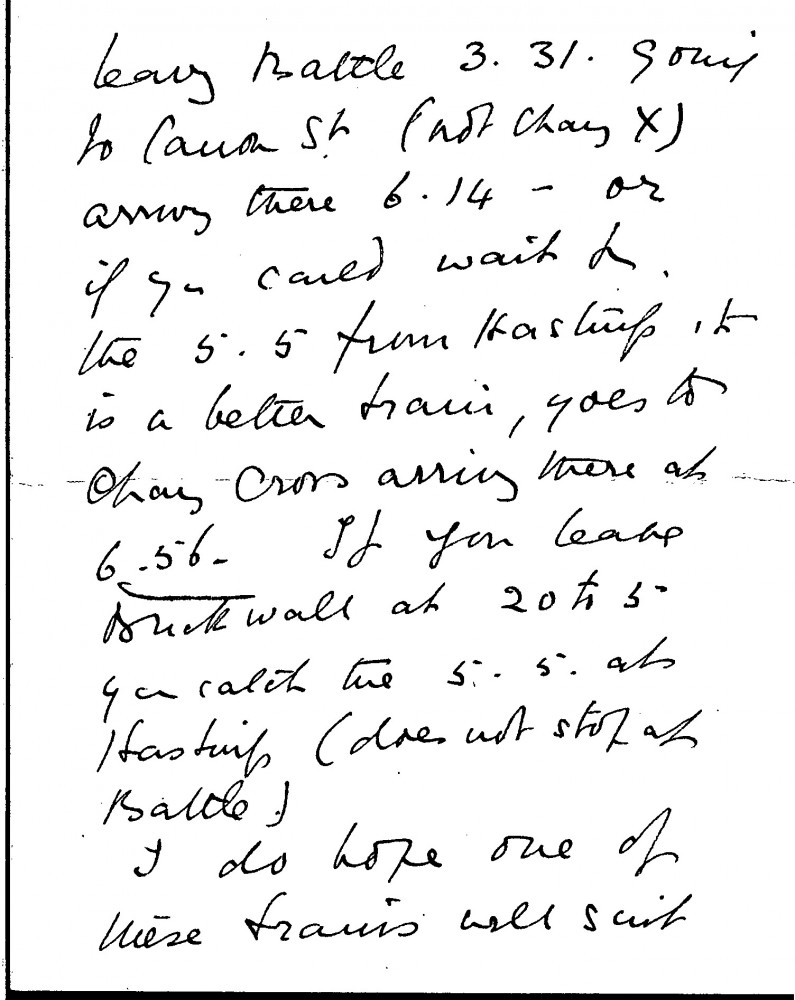 leaving Battle 3.31. going
to Cannon St (not Charing X)
arriving there 6.14 - or
if you could wait for
the 5.5 from Hastings it
is a better train, goes to
Charing Cross arriving there at
6.56. If you leave
Brickwall at 20 to 5
you catch the 5.5. at
Hastings (does not stop at
Battle)
I do hope one of
these trains will suit